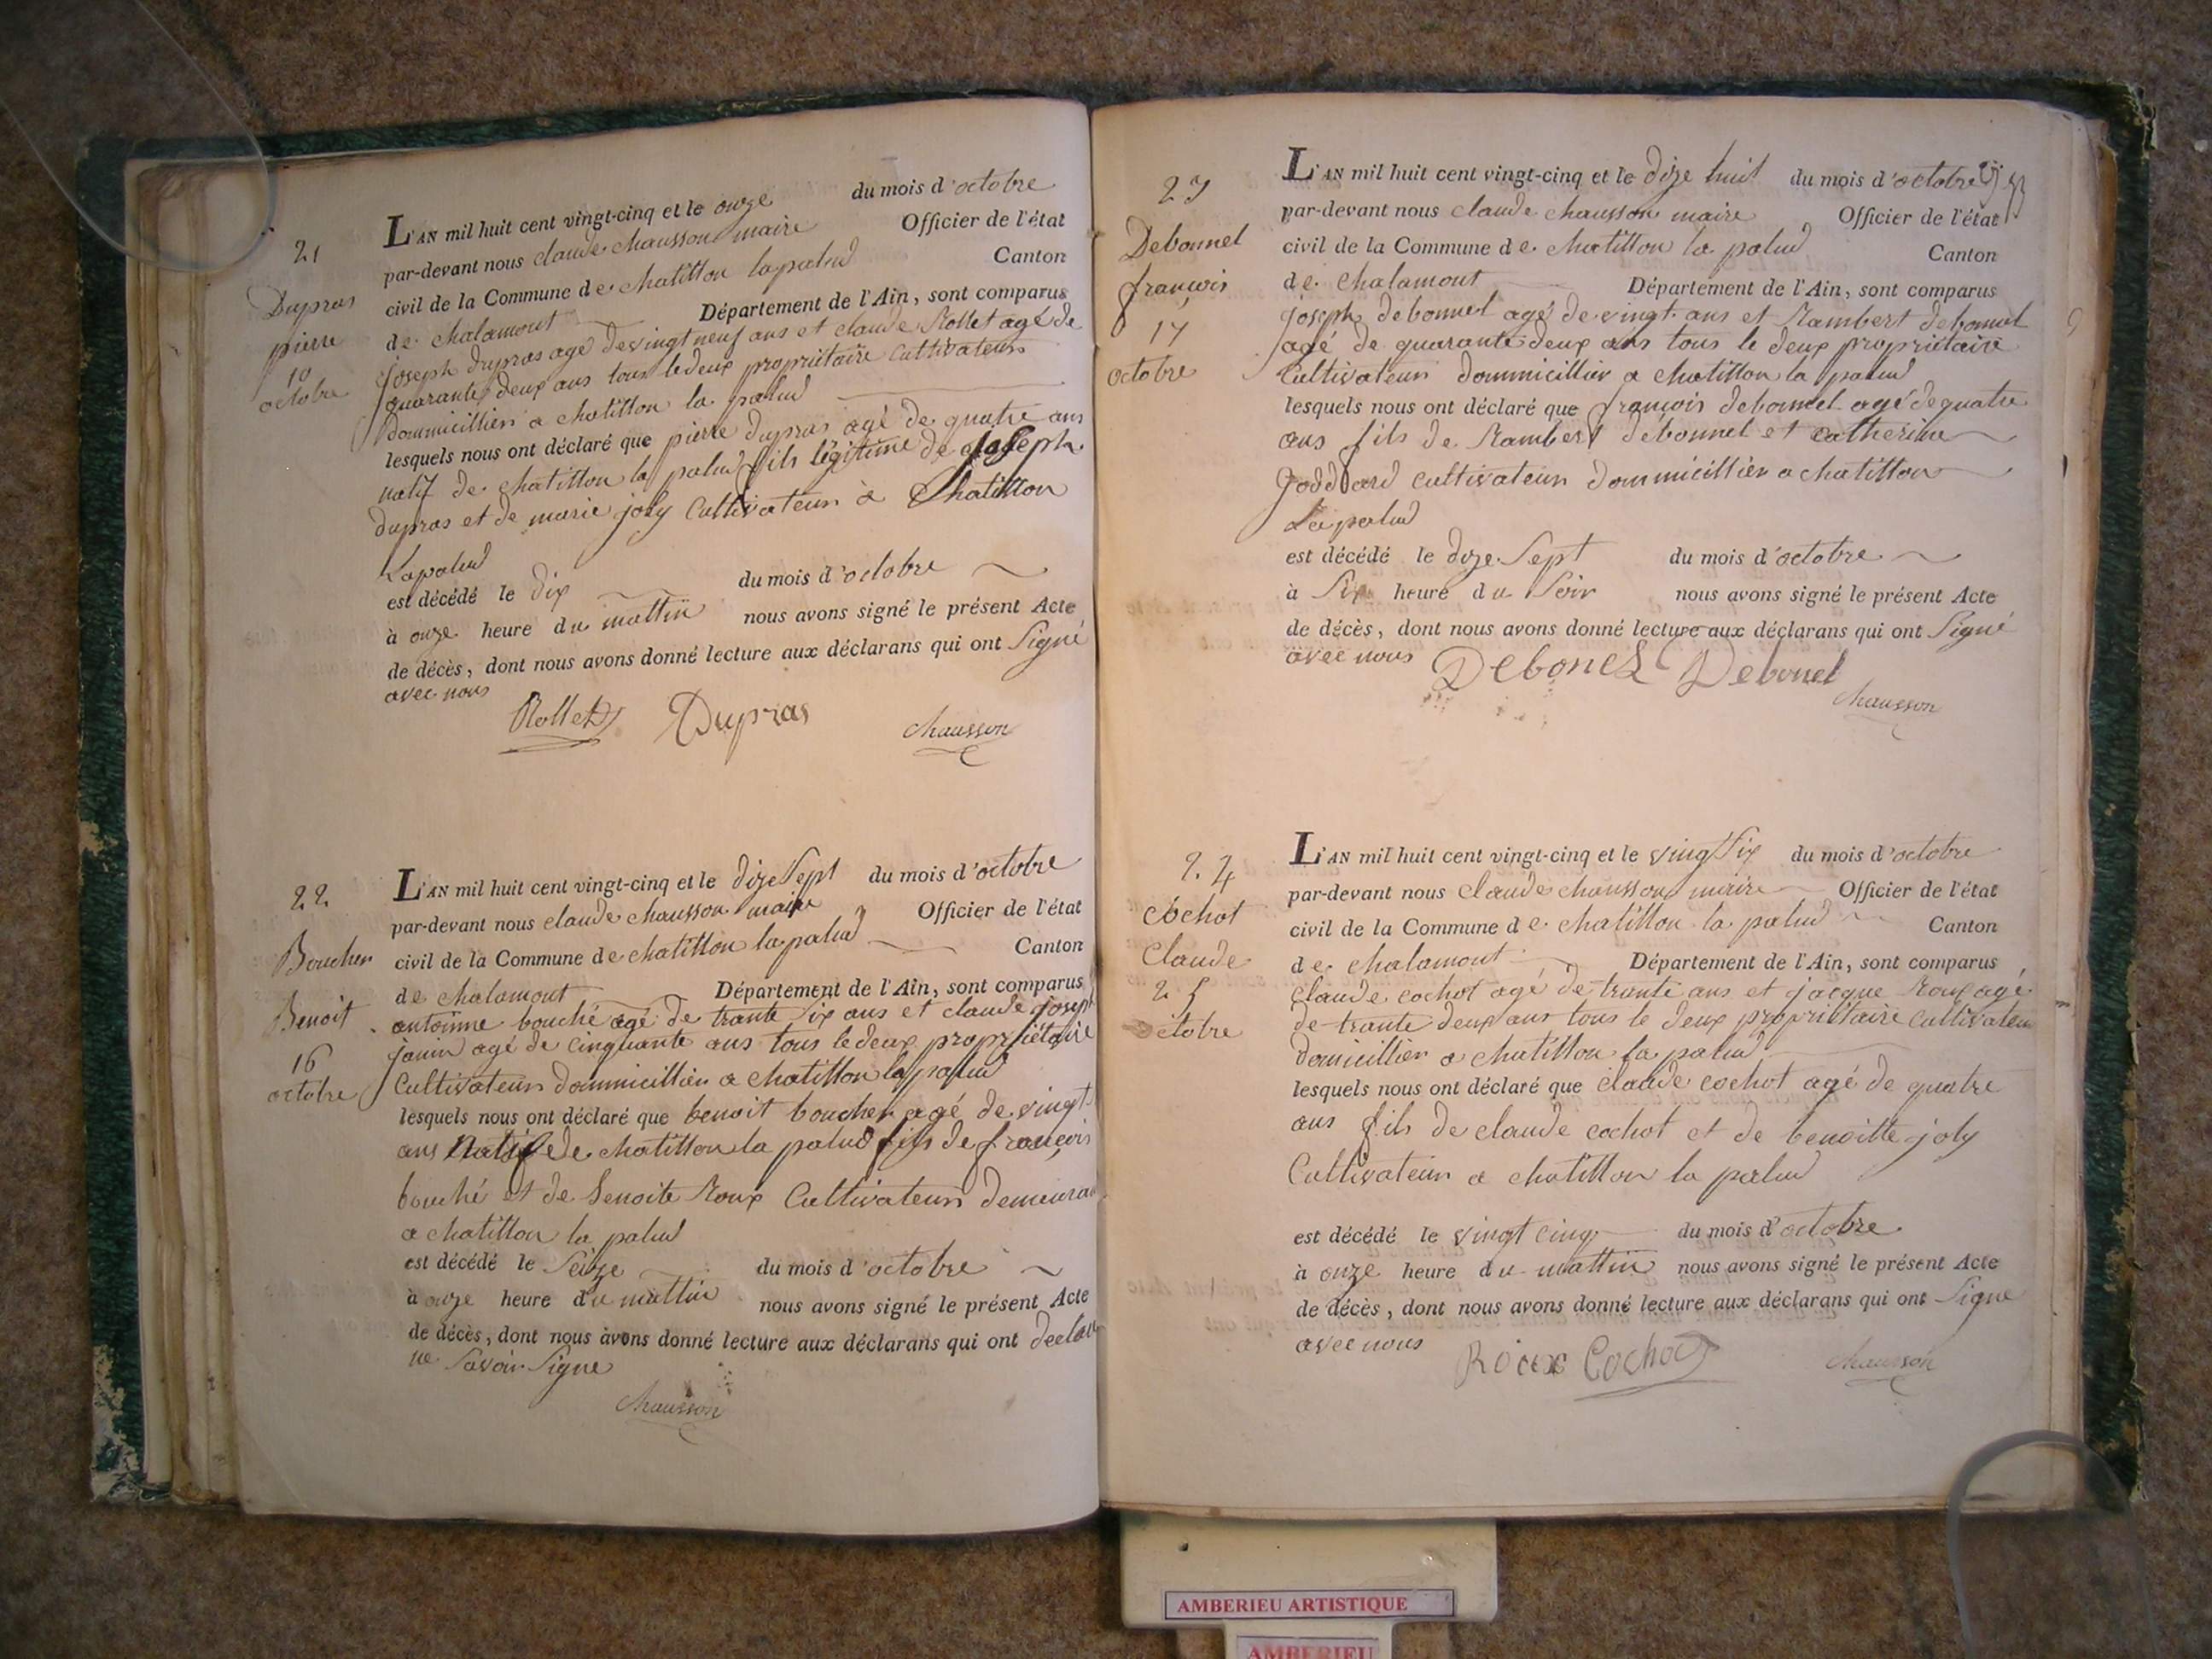 21
Dupras
pierre
10
octobre
L'AN mil huit cent vingt-cinq et le onze du mois d'octobre
par-devant nous claude chausson maire Officier de l'état
civil de la Commune de chatillon lapalud Canton
de chalamont Département de l'Ain, sont comparus
joseph dupras agé de vingt neuf ans et claude Rollet agé de
quarante deux ans tous le deux propriétaire cultivateurs
dommicillier a chatillon la palud
lesquels nous ont déclaré que pierre dupras agé de quatre ans
natif de chatillon la palud fils légitime de joseph
dupras et de marie joly Cultivateur à Chatillon
Lapalud
est décédé le dix du mois d'octobre
à onze heure du mattin nous avons signé le présent Acte
de décès, dont nous avons donné lecture aux déclarans qui ont Signé
avec nous
Rollet Dupras chausson
22
Boucher
Benoit
16
octobre
L'AN mil huit cent vingt-cinq et le dize Sept du mois d'octobre
par-devant nous claude chausson maire Officier de l'état
civil de la Commune de chatillon la palud Canton
de chalamont Département de l'Ain, sont comparus
antoinne bouché agé de trante Six ans et claude joseph
janin agé de cinquante ans tous le deux propriétaire
Cultivateurs dommicillier a chatillon la palud
lesquels nous ont déclaré que benoit boucher agé de vingt
ans Natif de chatillon la palud fils de francois
bouché et de benoite Roux Cultivateurs demeuran
a chatillon la palud
est décédé le Seize du mois d'octobre
à onze heure du mattin nous avons signé le présent Acte
de décès, dont nous avons donné lecture aux déclarans qui ont
ne Savoir Signe
chausson
23
Debonnel
francois
17
octobre
L'AN mil huit cent vingt-cinq et le dize huit du mois d'octobre
par-devant nous claude chausson maire Officier de l'état
civil de la Commune de chatillon la palud Canton
de chalamont Département de l'Ain, sont comparus
joseph debonnel agé de vingt ans et Rambert debonnel
agé de quarante deux ans tous le deux propriétaire
Cultivateurs dommicillier a chatillon la palud
lesquels nous ont déclaré que françois debonnel agé de quatre
ans fils de Rambert debonnel et catherine
Goddard cultivateurs dommicillier a chatillon
Lapalud
est décédé le dize Sept du mois d'octobre
à Six heure du Soir nous avons signé le présent Acte
de décès, dont nous avons donné lecture aux déclarans qui ont Signé
avec nous Debonel Debonel
chausson
24
Cochot
Claude
25
octobre
L'AN mil huit cent vingt-cinq et le vingt Six du mois d'octobre
par-devant nous claude chausson maire Officier de l'état
civil de la Commune de chatillon la palud Canton
de chalamont Département de l'Ain, sont comparus
Claude cochot agé de trante ans et jacque Roux agé
de trante deux ans tous le deux propriétaire cultivateur
domicillier a chatillon la palud
lesquels nous ont déclaré que claude cochot agé de quatre
ans fils de claude cochot et de benoitte joly
Cultivateur a chatillon la palud
est décédé le vingt cinq du mois d'octobre
à onze heure du mattin nous avons signé le présent Acte
de décès, dont nous avons donné lecture aux déclarans qui ont Signe
avec nous
Roux Cochot chausson
AMBERIEU ARTISTIQUE
AMBERIEU